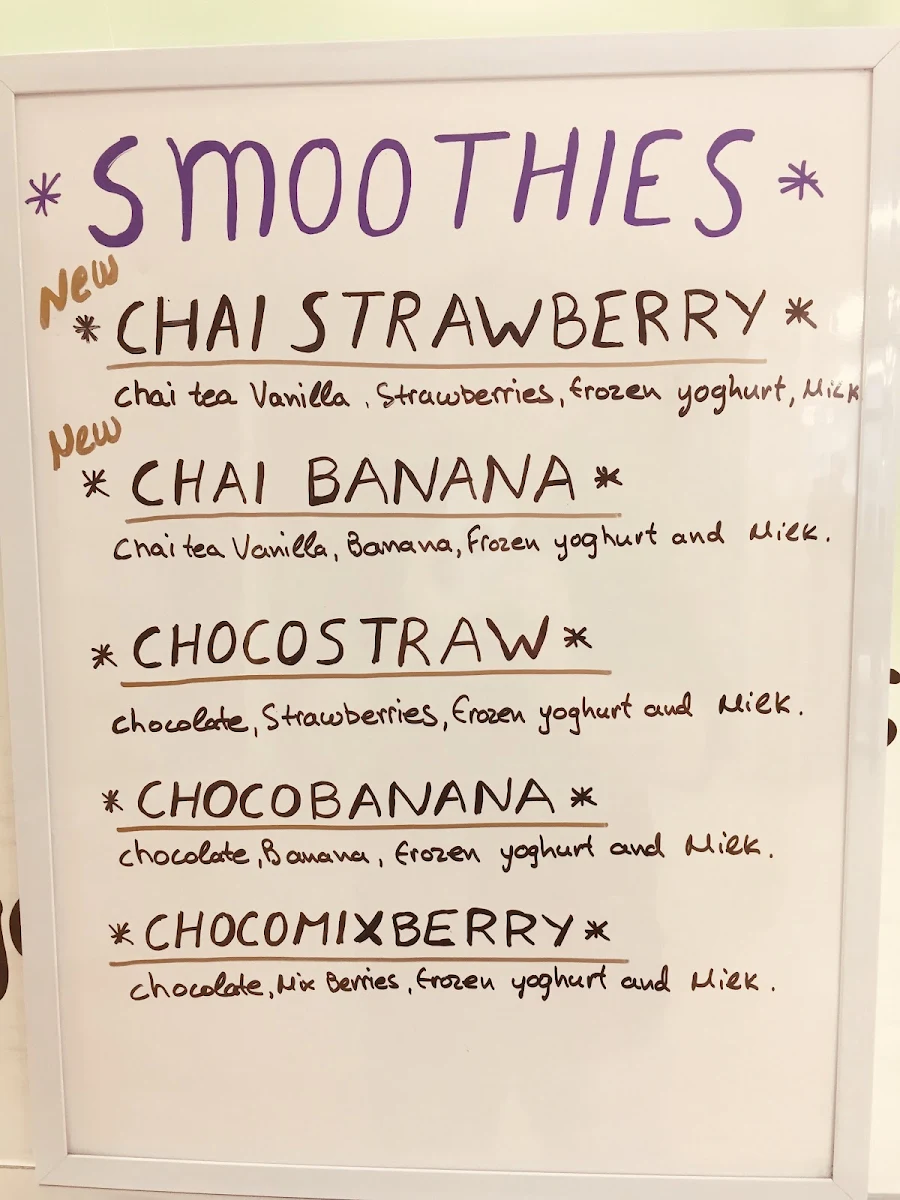 * SMOOTHIES *
New
* CHAI STRAWBERRY *
Chai tea Vanilla, Strawberries, Frozen yoghurt, Milk
New
* CHAI BANANA *
Chai tea Vanilla, Banana, Frozen yoghurt and Milk.
* CHOCOSTRAW *
chocolate, Strawberries, Frozen yoghurt and Milk.
* CHOCOBANANA *
chocolate, Banana, Frozen yoghurt and Milk.
* CHOCOMIXBERRY *
chocolate, Mix Berries, Frozen yoghurt and Milk.